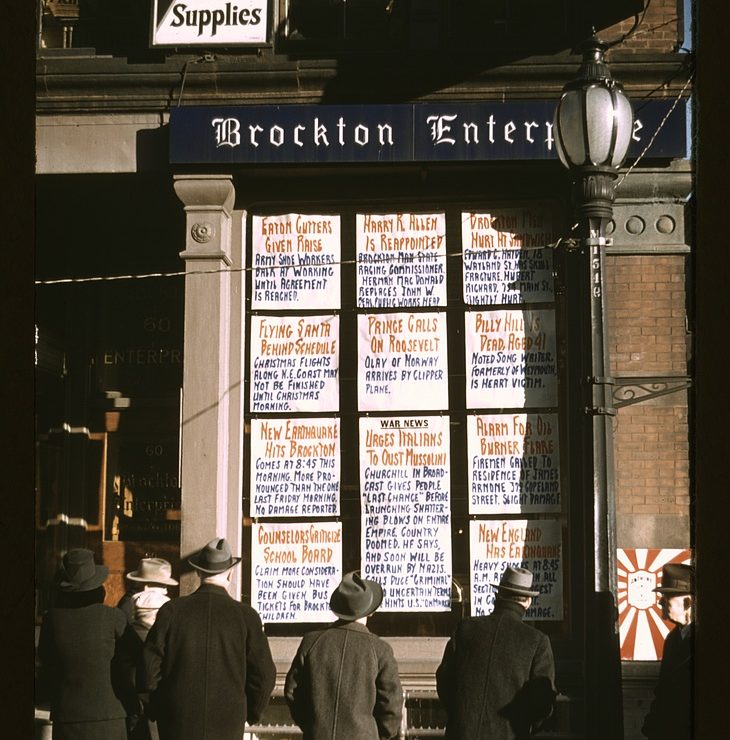 Supplies
Brockton Enterp e
EATON CUTTERS
GIVEN RAISE
ARMY SHOE WORKERS
BACK AT WORKING
UNTIL AGREEMENT
IS REACHED.
HARRY R. ALLEN
IS REAPPOINTED
BROCKTON MAN STATE
RACING COMMISSIONER.
HERMAN MACDONALD
REPLACES JOHN W
PUBLIC WORKS HEAD
BROCKTON MEN
HURT AT SANDWICH
EDWARD C. 18
WAYLAND ST. HAS SKULL
FRACTURE. HUBERT
RICHARD, MAIN ST.
SLIGHTLY HURT
FLYING SANTA
BEHIND SCHEDULE
CHRISTMAS FLIGHTS
ALONG N.E. COAST MAY
NOT BE FINISHED
UNTIL CHRISTMAS
MORNING.
PRINCE CALLS
ON ROOSEVELT
OLAV OF NORWAY
ARRIVES BY CLIPPER
PLANE.
BILLY HILL IS
DEAD, AGED 41
NOTED SONG WRITER.
FORMERLY OF WEYMOUTH,
IS HEART VICTIM.
NEW EARTHQUAKE
HITS BROCKTON
COMES AT 8:45 THIS
MORNING. MORE PRO-
NOUNCED THAN THE ONE
LAST FRIDAY MORNING.
NO DAMAGE REPORTED.
WAR NEWS
URGES ITALIANS
TO OUST MUSSOLINI
CHURCHILL IN BROAD-
CAST GIVES PEOPLE
"LAST CHANCE" BEFORE
LAUNCHING SHATTER-
ING BLOWS ON ENTIRE
EMPIRE. COUNTRY
DOOMED. HE SAYS,
AND SOON WILL BE
OVERRUN BY NAZIS.
CALLS DUCE "CRIMINAL"
UNCERTAIN TERMS
HINTS U.S. ON MARCH
ALARM FOR OIL
BURNER FLARE
FIREMEN CALLED TO
RESIDENCE OF JAMES
ARNONE 379 COPELAND
STREET. SLIGHT DAMAGE.
COUNSELORS CRITICIZE
SCHOOL BOARD
CLAIM MORE CONSIDERA-
TION SHOULD HAVE
BEEN GIVEN BUS
TICKETS FOR BROCKTON
CHILDREN.
NEW ENGLAND
HAS EARTHQUAKE
HEAVY SHOCKS AT 8:45
A.M. IN ALL
IN
NO DAMAGE.
60
ENTERPR
60